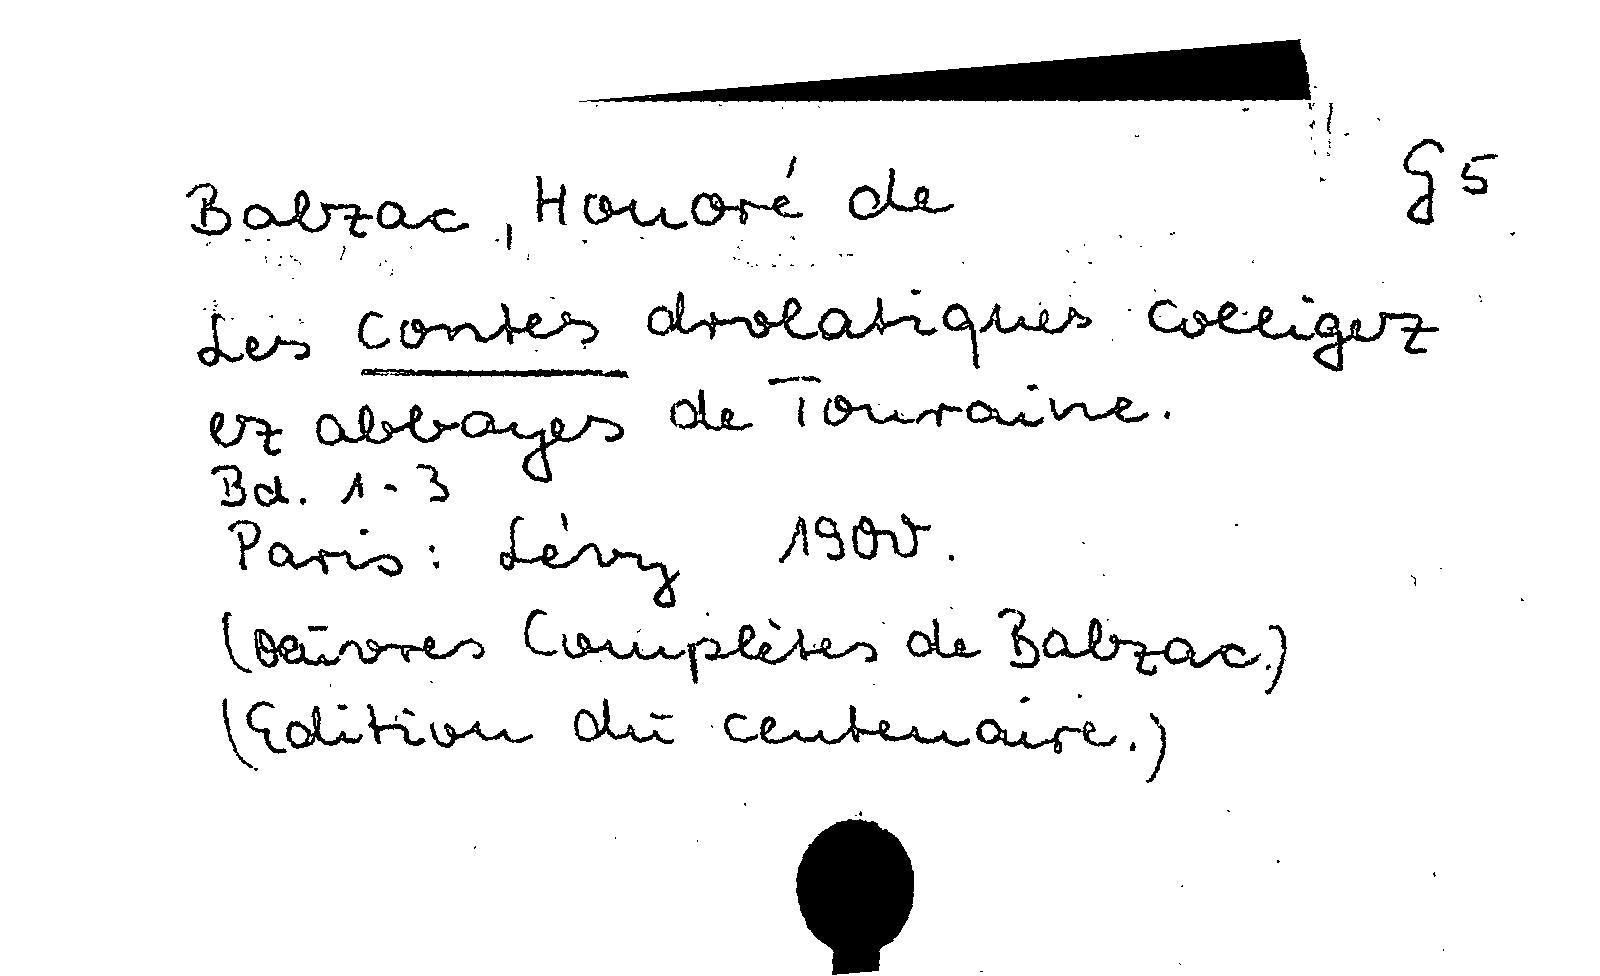 Balzac, Honoré de
G 5
Les contes drolatiques colligez
ez abbayes de Touraine.
Bd. 1-3
Paris: Lévy 1900.
(oeuvres complètes de Balzac.)
(Edition du centenaire.)